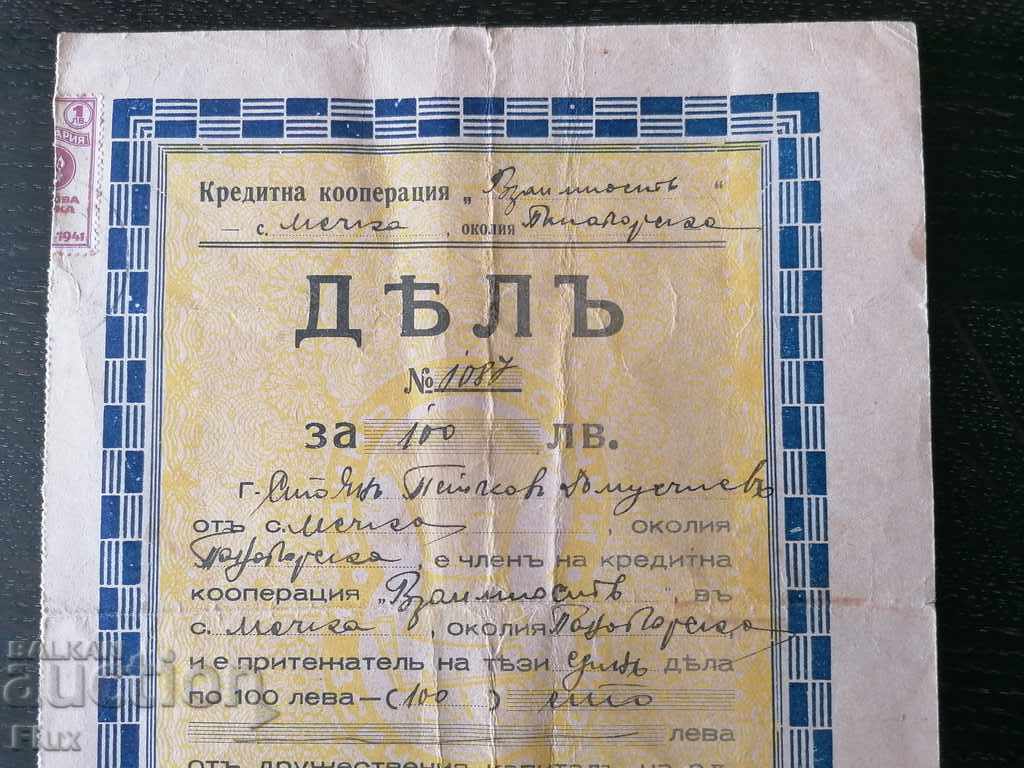 1
ЛВ.
АРИЯ
ОВА
КА
1941
Кредитна кооперация „Взаимность“
— с. Мечка, околия Пловдивска
ДѢЛЪ
№ 1087
за 100 лв.
г-Стоянъ Петков
отъ с. Мечка, околия
е членъ на кредитна
кооперация „Взаимность“, въ
с. Мечка, околия
и е притежатель на тѣзи единъ дѣла
по 100 лева — (100) сто
лева
отъ дружествения капиталъ на
BALKAN
auction
Flux